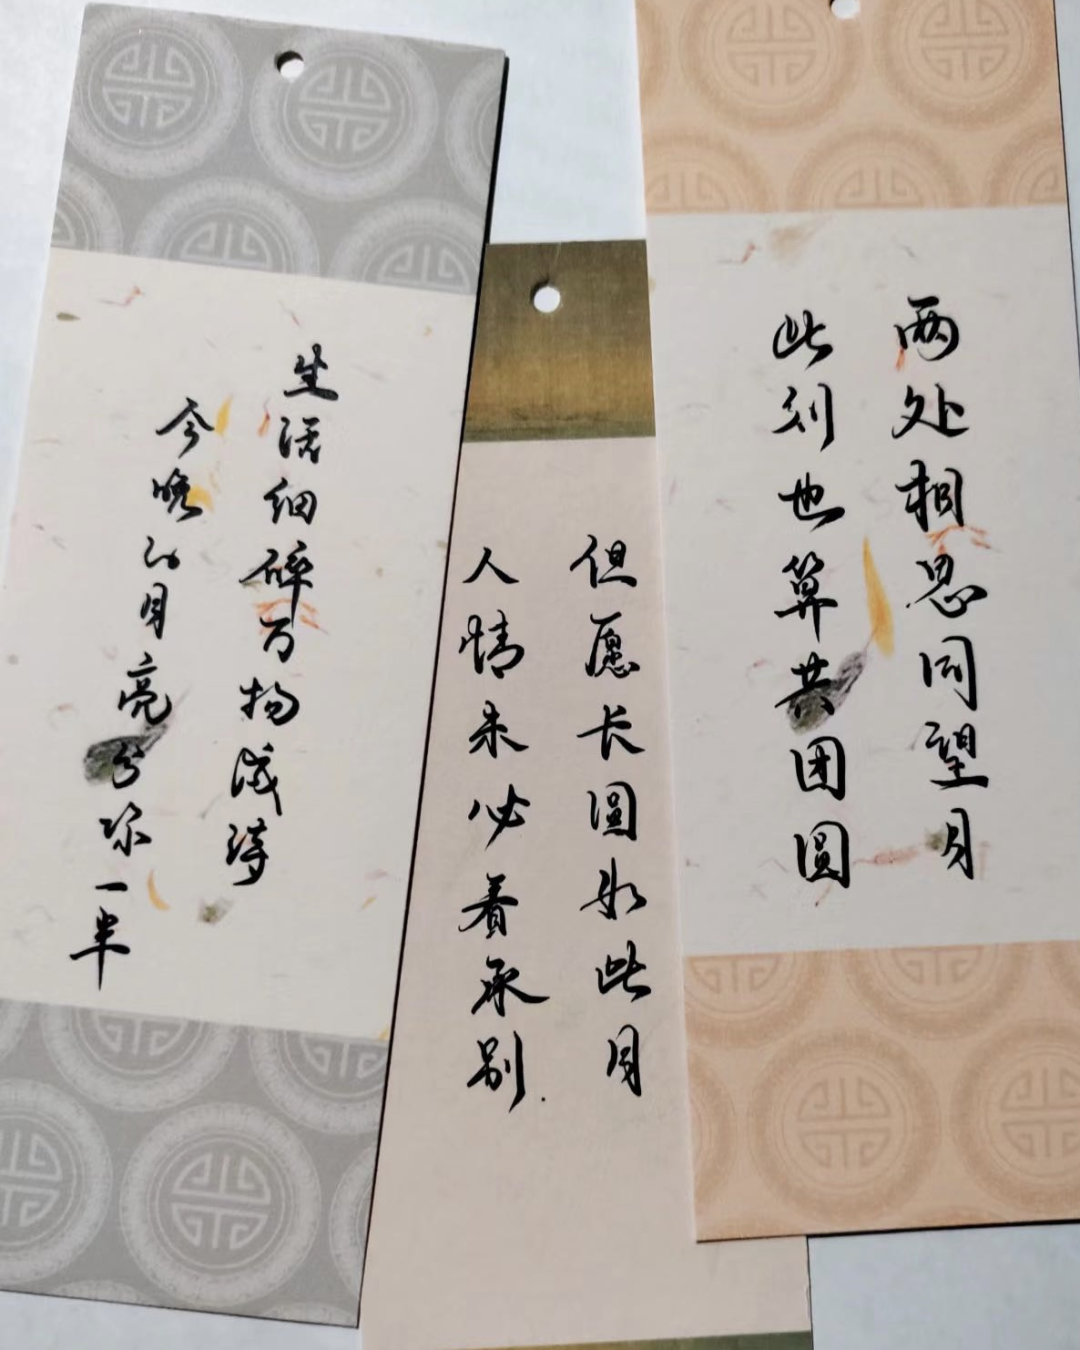 两处相思同望月
此刻也算共团圆
但愿长圆如此月
人情未必看承别
生活细碎万物成诗
今晚的月亮分你一半